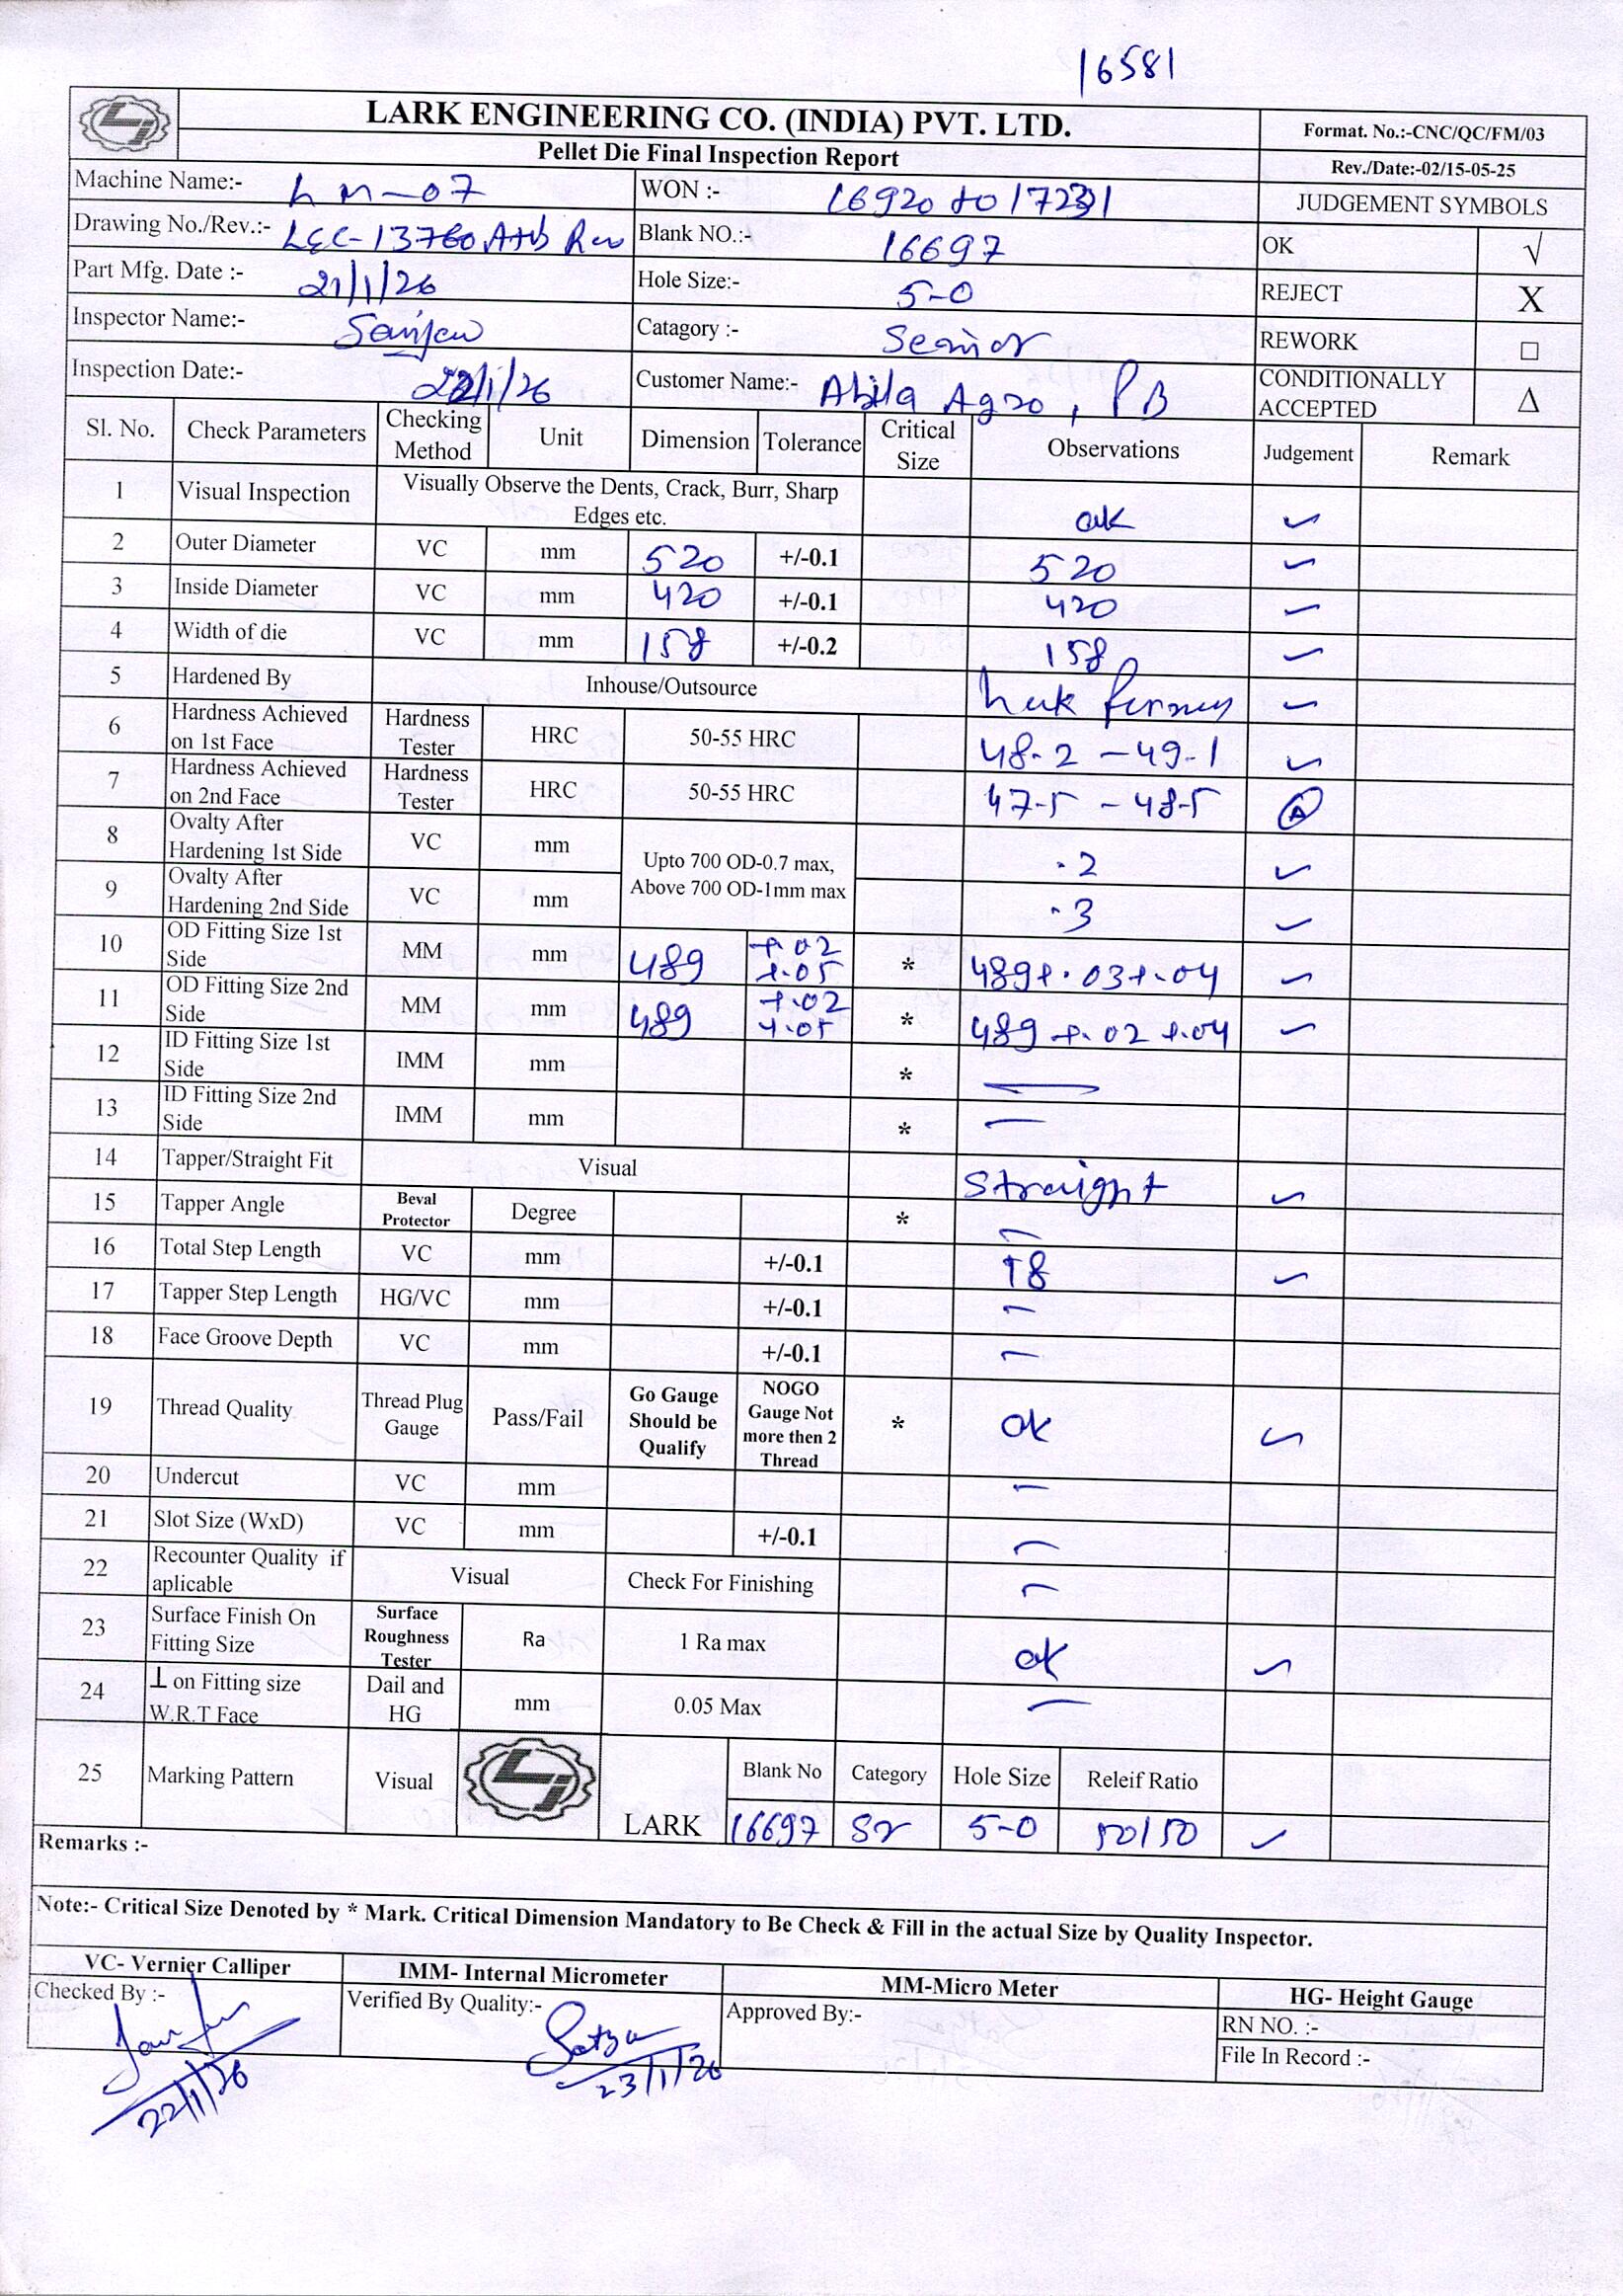 16581
LARK ENGINEERING CO. (INDIA) PVT. LTD.
Pellet Die Final Inspection Report
Format. No.:-CNC/QC/FM/03
Rev./Date:-02/15-05-25
Machine Name:- LM-07 WON :- 16920 to 17231 JUDGEMENT SYMBOLS
Drawing No./Rev.:- LEC-13760 A+B Rev Blank NO.:- 16697 OK √
Part Mfg. Date :- 21/1/26 Hole Size:- 5-0 REJECT X
Inspector Name:- Sanjeev Catagory :- Senior REWORK □
Inspection Date:- 22/1/26 Customer Name:- Abila Agro, PB CONDITIONALLY ACCEPTED Δ
Sl. No. Check Parameters Checking Method Unit Dimension Tolerance Critical Size Observations Judgement Remark
1 Visual Inspection Visually Observe the Dents, Crack, Burr, Sharp Edges etc. ok √
2 Outer Diameter VC mm 520 +/-0.1 520 √
3 Inside Diameter VC mm 420 +/-0.1 420 √
4 Width of die VC mm 158 +/-0.2 158 √
5 Hardened By Inhouse/Outsource √
6 Hardness Achieved on 1st Face Hardness Tester HRC 50-55 HRC 48-2 - 49-1 √
7 Hardness Achieved on 2nd Face Hardness Tester HRC 50-55 HRC 47-5 - 48-5 A
8 Ovalty After Hardening 1st Side VC mm Upto 700 OD-0.7 max, Above 700 OD-1mm max .2 √
9 Ovalty After Hardening 2nd Side VC mm .3 √
10 OD Fitting Size 1st Side MM mm 489 +.02 +.05 * 489+.03+.04 √
11 OD Fitting Size 2nd Side MM mm 489 +.02 +.05 * 489 +.02 +.04 √
12 ID Fitting Size 1st Side IMM mm * —
13 ID Fitting Size 2nd Side IMM mm * —
14 Tapper/Straight Fit Visual Straight √
15 Tapper Angle Beval Protector Degree * —
16 Total Step Length VC mm +/-0.1 18 √
17 Tapper Step Length HG/VC mm +/-0.1 —
18 Face Groove Depth VC mm +/-0.1 —
19 Thread Quality Thread Plug Gauge Pass/Fail Go Gauge Should be Qualify NOGO Gauge Not more then 2 Thread * ok √
20 Undercut VC mm —
21 Slot Size (WxD) VC mm +/-0.1 —
22 Recounter Quality if aplicable Visual Check For Finishing —
23 Surface Finish On Fitting Size Surface Roughness Tester Ra 1 Ra max ok √
24 ⊥ on Fitting size W.R.T Face Dail and HG mm 0.05 Max —
25 Marking Pattern Visual LARK Blank No Category Hole Size Releif Ratio
16697 Sr 5-0 50/50 √
Remarks :-
Note:- Critical Size Denoted by * Mark. Critical Dimension Mandatory to Be Check & Fill in the actual Size by Quality Inspector.
VC- Vernier Calliper IMM- Internal Micrometer MM-Micro Meter HG- Height Gauge
Checked By :- Verified By Quality:- Approved By:- RN NO. :-
File In Record :-
22/1/26
23/1/26